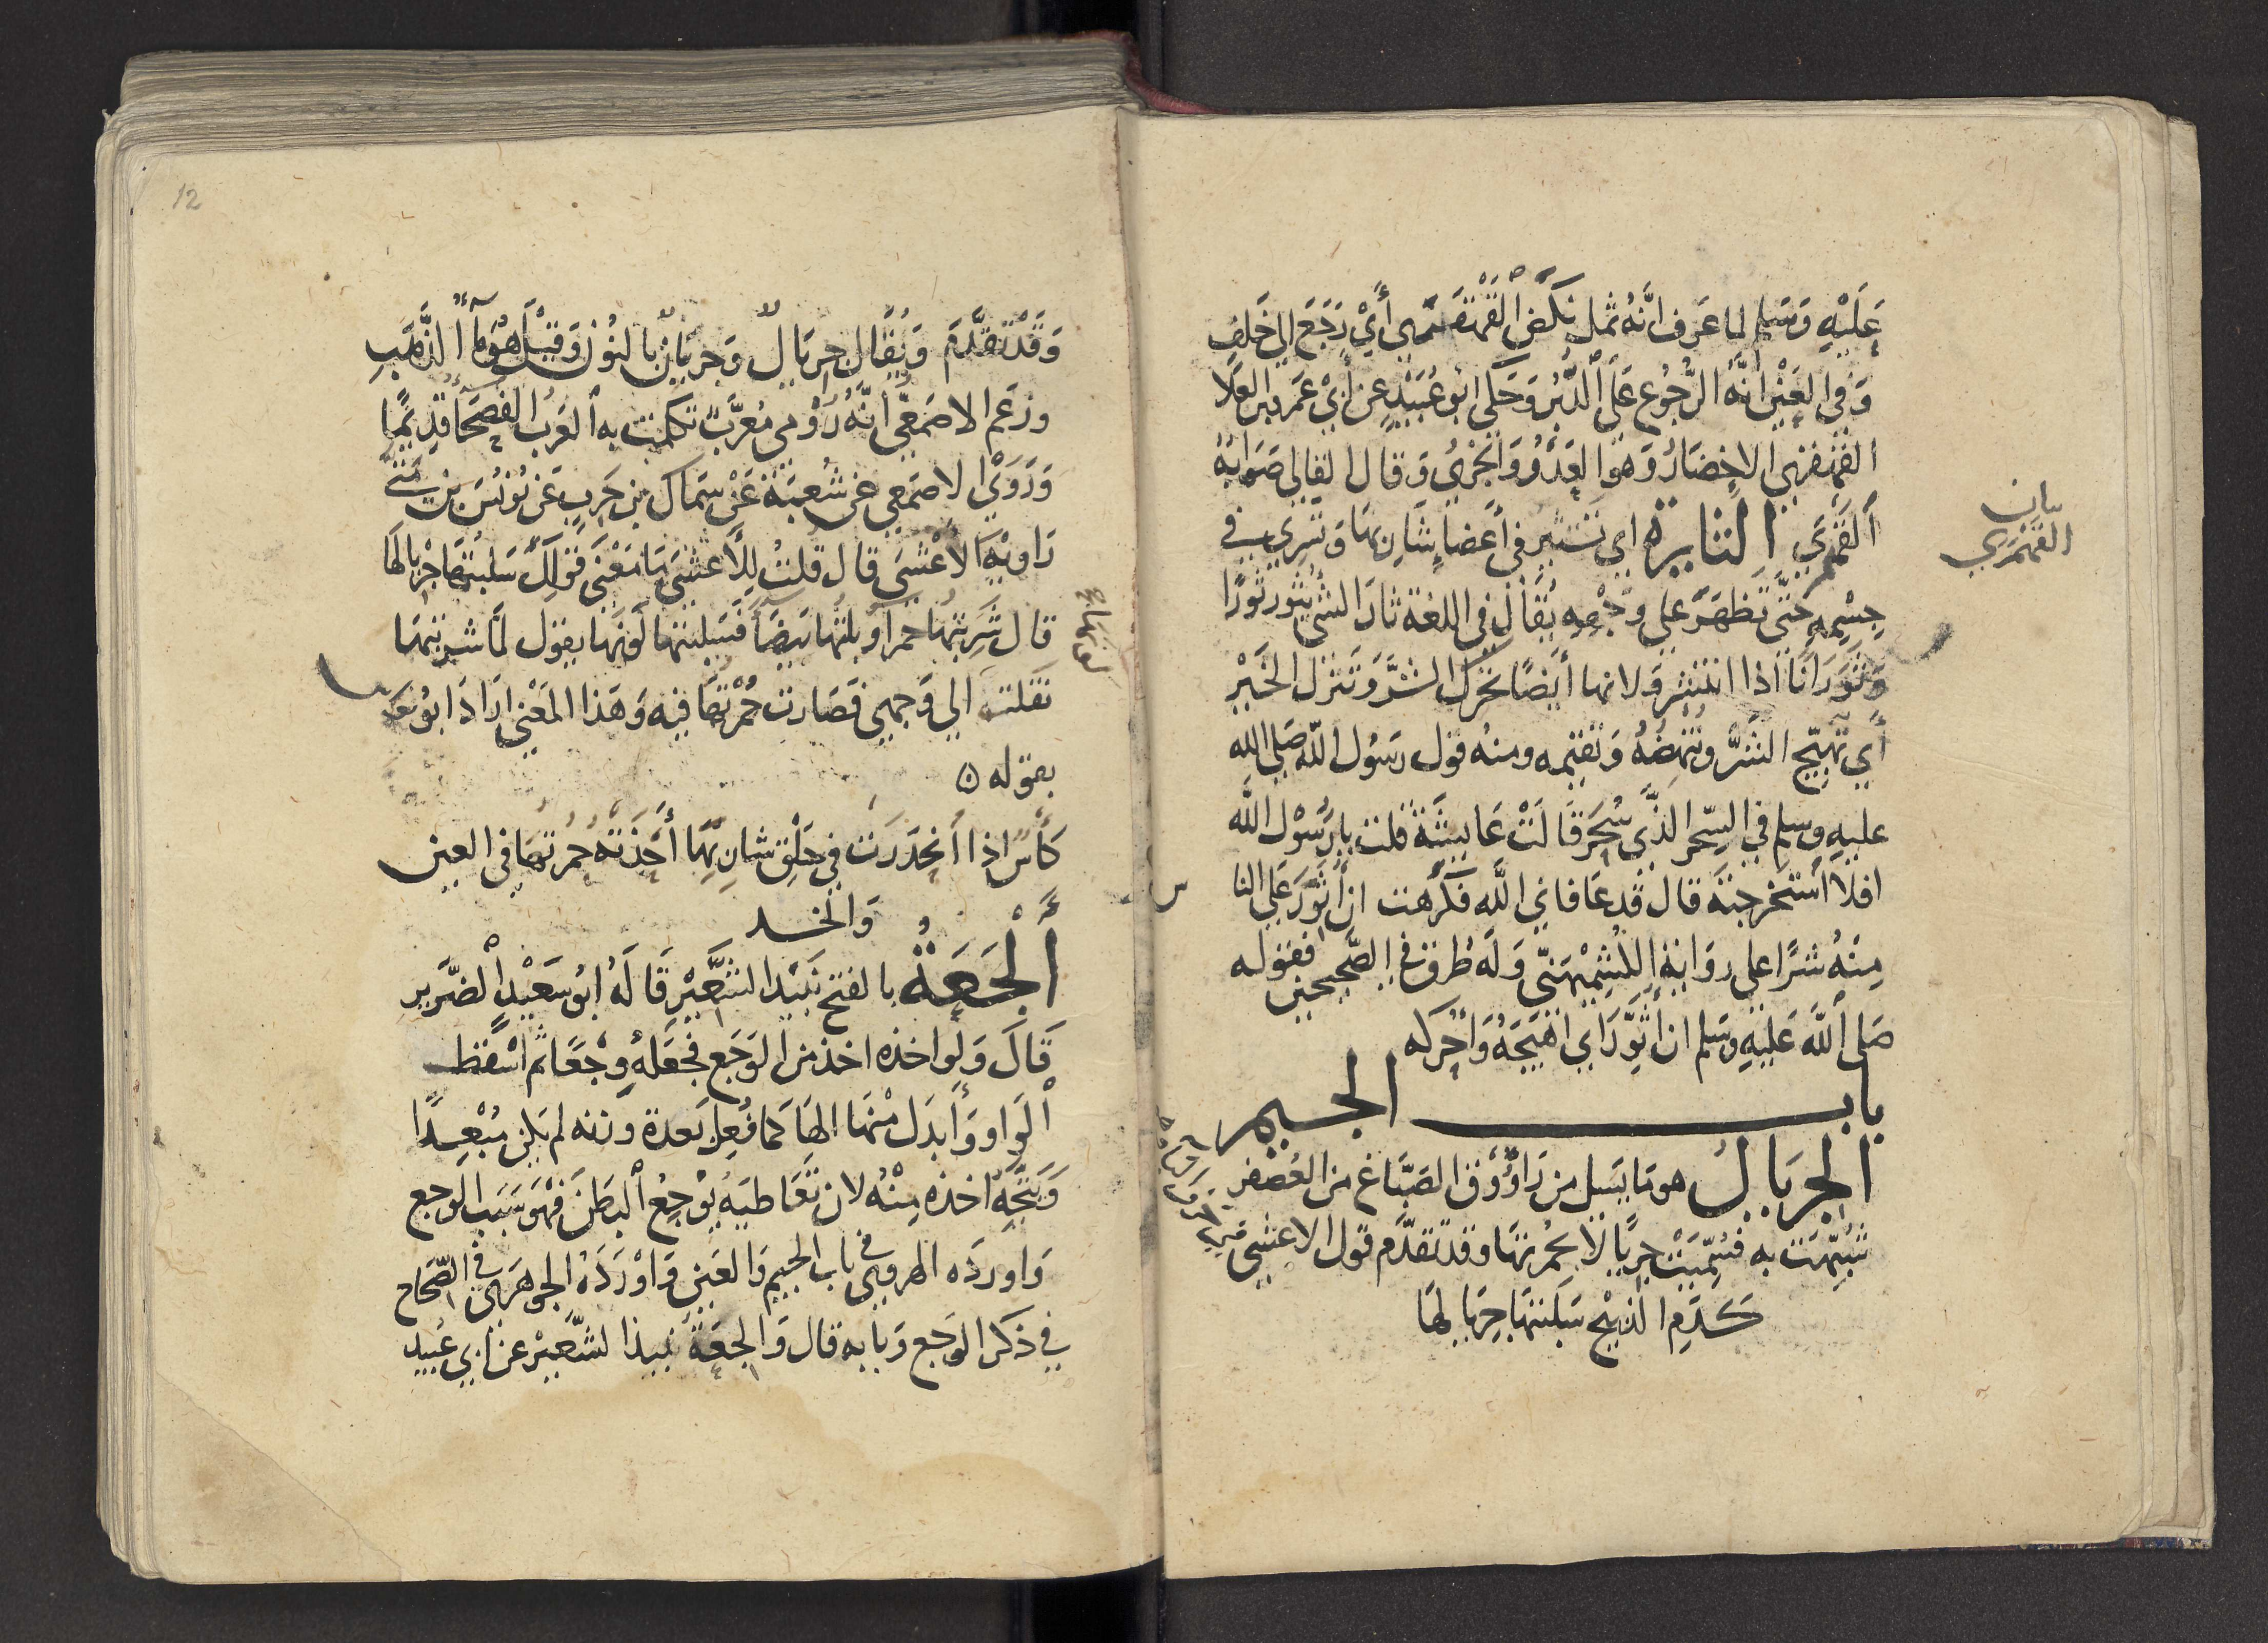 عَلَيْهِ وَسَلم لما عَرف انَّهُ ثمل نكص القَهْقَرى أَيْ رَجَع الي خَلفِ
وَفي العَيْن انَّهُ الرُّجُوع عَلَى الدُّبُر وَحَكى ابُو عُبَيْدٍ عن أبي عَمرو بن العَلا
القهقرى الاحْضَارُ وَهوَ العَدْوُ وَالجَرْيُ وَقال القالي صَوابُهُ
القَهْمَزَي الثايرة اي تَنْتَشِر في أعْضاءِ شَارِبهَا وَتَسْرِي في
بيان
القهْمَزي
جِسْمِه حَتَّى تَظهَرَ على وَجْهِهِ يُقَال في اللغة ثارَ الشئ يثُور ثورًا
وَثَوَرَانًا اذا انتشر وَلانها أيضًا تحرّك الشَّرَّ وَتنزل الخَيْر
أي تُهَيّج الشَّرَّ وتُنْهِضُهُ وَتقيمه ومنهُ قول رسُول اللّه صَلى الله
عليه وسلم في السِّحر الذَّي سُحِرَ قَالَتْ عَايشَة قلت يا رسُوْل اللّه
افلا أستخرجته قال قد عَافاني اللّه فكَرهت ان أُثَوِّرَ عَلى النا
س
مِنْهُ شرًا على روَاية الكُشِمْيهَنّي وَلهَ طرق في الصّحيحين فقوله
صَلى اللَّه عَليْهِ وَسَلم ان أُثَوِّرَ اي اهَيِّجَهُ وَاُحَرّكه
باب الجيم
الجِريَالُ هو مَا يَسيل من رَاوُوْق الصَبَّاغ من العُصْفر
شُبّهَت به فسُمِّيَتْ جِرْيَالا لحُمرتهَا وقد تقدَّم قول الاعشى
كَدَمِ الذبيْح سَلَبتهَا جريالهَا
12
وَقَدْ تقدَّمَ وَيُقَال جريَالٌ وَجريَانٌ بالنُون وَقيْل هُوَ مَآ الذَّهَبِ
وزعَم الاصْمَعىُّ أنَّهُ رُوْمي مُعَرَّبٌ تكلمَت به العَربُ الفصحَآ قدِيمًا
وَرَوَى الاصْمَعي عن شُعبَة عَنْ سِمَاك بن حَربٍ عَن يُونسَ بن مَتى
رَاويَة الاعْشىَ قال قلتُ للأعشى مَا مَعْنَى قولِكَ سَلبتُهَا جريالهَا
قال شَرِبتُهَا حمرآ وَبلتُهَا بَيضآ فسَلبتها لَونهَا يقول لمَّا شربتهَا
نقلت الي وَجهي فصَارت حُمْرَتها فيه وَهَذا المَعْني ارَادَ ابُو نو
س
بقوله
كَأس اذا انحدَرَت في حَلْق شارِبِهَا أَجَدْتَهُ حُمرتهَا في العين
وَالخد
ألْجَعَةُ بالفتح نَبيْد الشَّعِيْر قَالَهُ ابُو سَعيْدٍ الضَّرير
قَالَ وَلَوا خذه اخذ من الوَجَع فجعَلهُ وجْعًا ثم اسْقط
الْوَاو وَأبدَل مْنهَا الهَا كما فُعِل بَعدة وَزنه لم يكن مُبْعِدًا
وَيتَّجه اخذه مِنْهُ لان تعَاطيَهُ يُوْجِعُ البطنَ فهوَ سَبَب الوجع
وَاورَدَه الهروي في باب الجيم وَالعَين وَاوْرَدَهُ الجوهَريُّ في الصّحاح
في ذكر الوَجع وَبابه قال وَالجعَة نبيذ الشَّعيْر عن ابي عُبيد